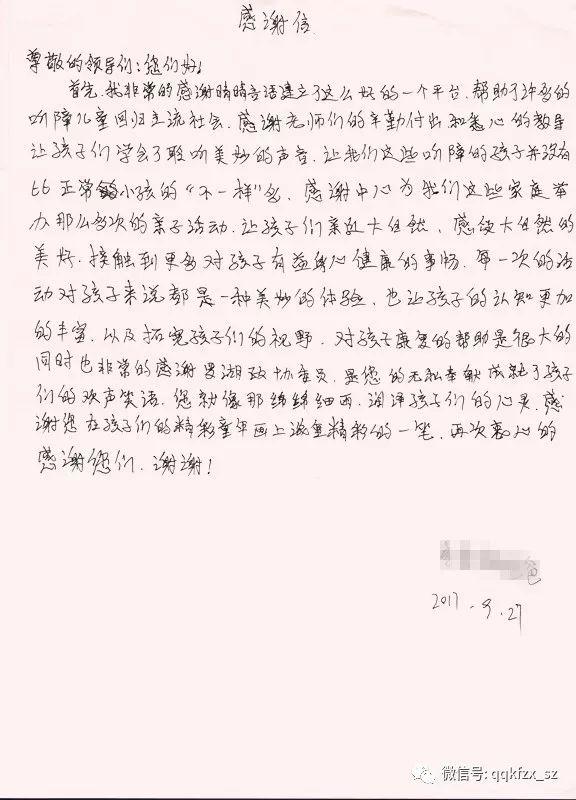 感谢信
尊敬的领导们:您们好!
首先,我非常的感谢晴晴言语建立了这么好的一个平台,帮助了许多的
听障儿童回归主流社会,感谢老师们的辛勤付出和悉心的教导
让孩子们学会了聆听美妙的声音,让我们这些听障的孩子并没有
比正常小孩的“不一样”多,感谢中心为我们这些家庭举
办那么多次的亲子活动,让孩子们亲近大自然,感受大自然的
美好,接触到更多对孩子有益身心健康的事物,每一次的活
动对孩子来说都是一种美妙的体验,也让孩子的认知更加
的丰富,以及拓宽孩子们的视野,对孩子康复的帮助是很大的
同时也非常的感谢罗湖政协委员,是您的无私奉献成就了孩子
们的欢声笑语,您就像那绵绵细雨,润泽孩子们的心灵,感
谢您在孩子们的精彩童年画上浓重精彩的一笔,再次衷心的
感谢您们,谢谢!
爸
2017.9.27
微信号: qqkfzx_sz